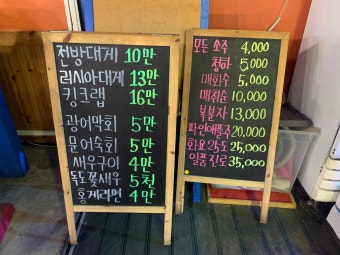 전방대게 10만
러시아대게 13만
킹크랩 16만
광어막회 5만
문어숙회 5만
새우구이 4만
독도꽃새우 5천
홍게라면 4만
모든 소주 4,000
청하 5,000
매화수 5,000
매취순 10,000
복분자 13,000
파인애플주 20,000
화요25도 25,000
일품진로 35,000